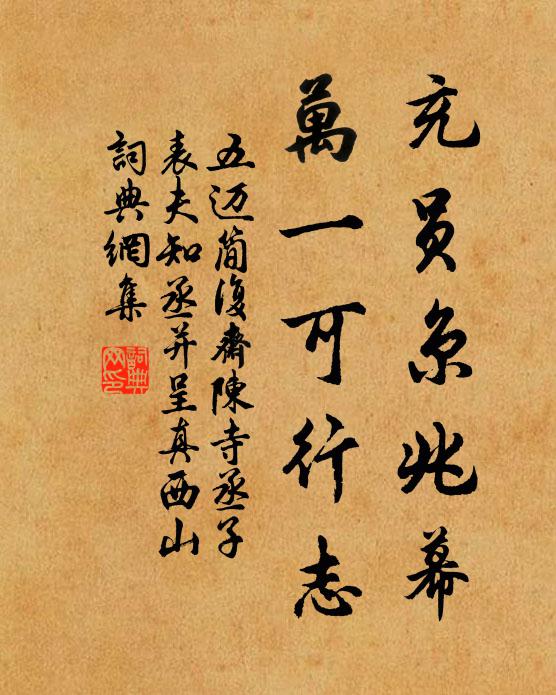 充員京兆幕
萬一可行志
五迈简復齋陳寺丞子
表夫知丞并呈真西山
詞典網集
詞典網印